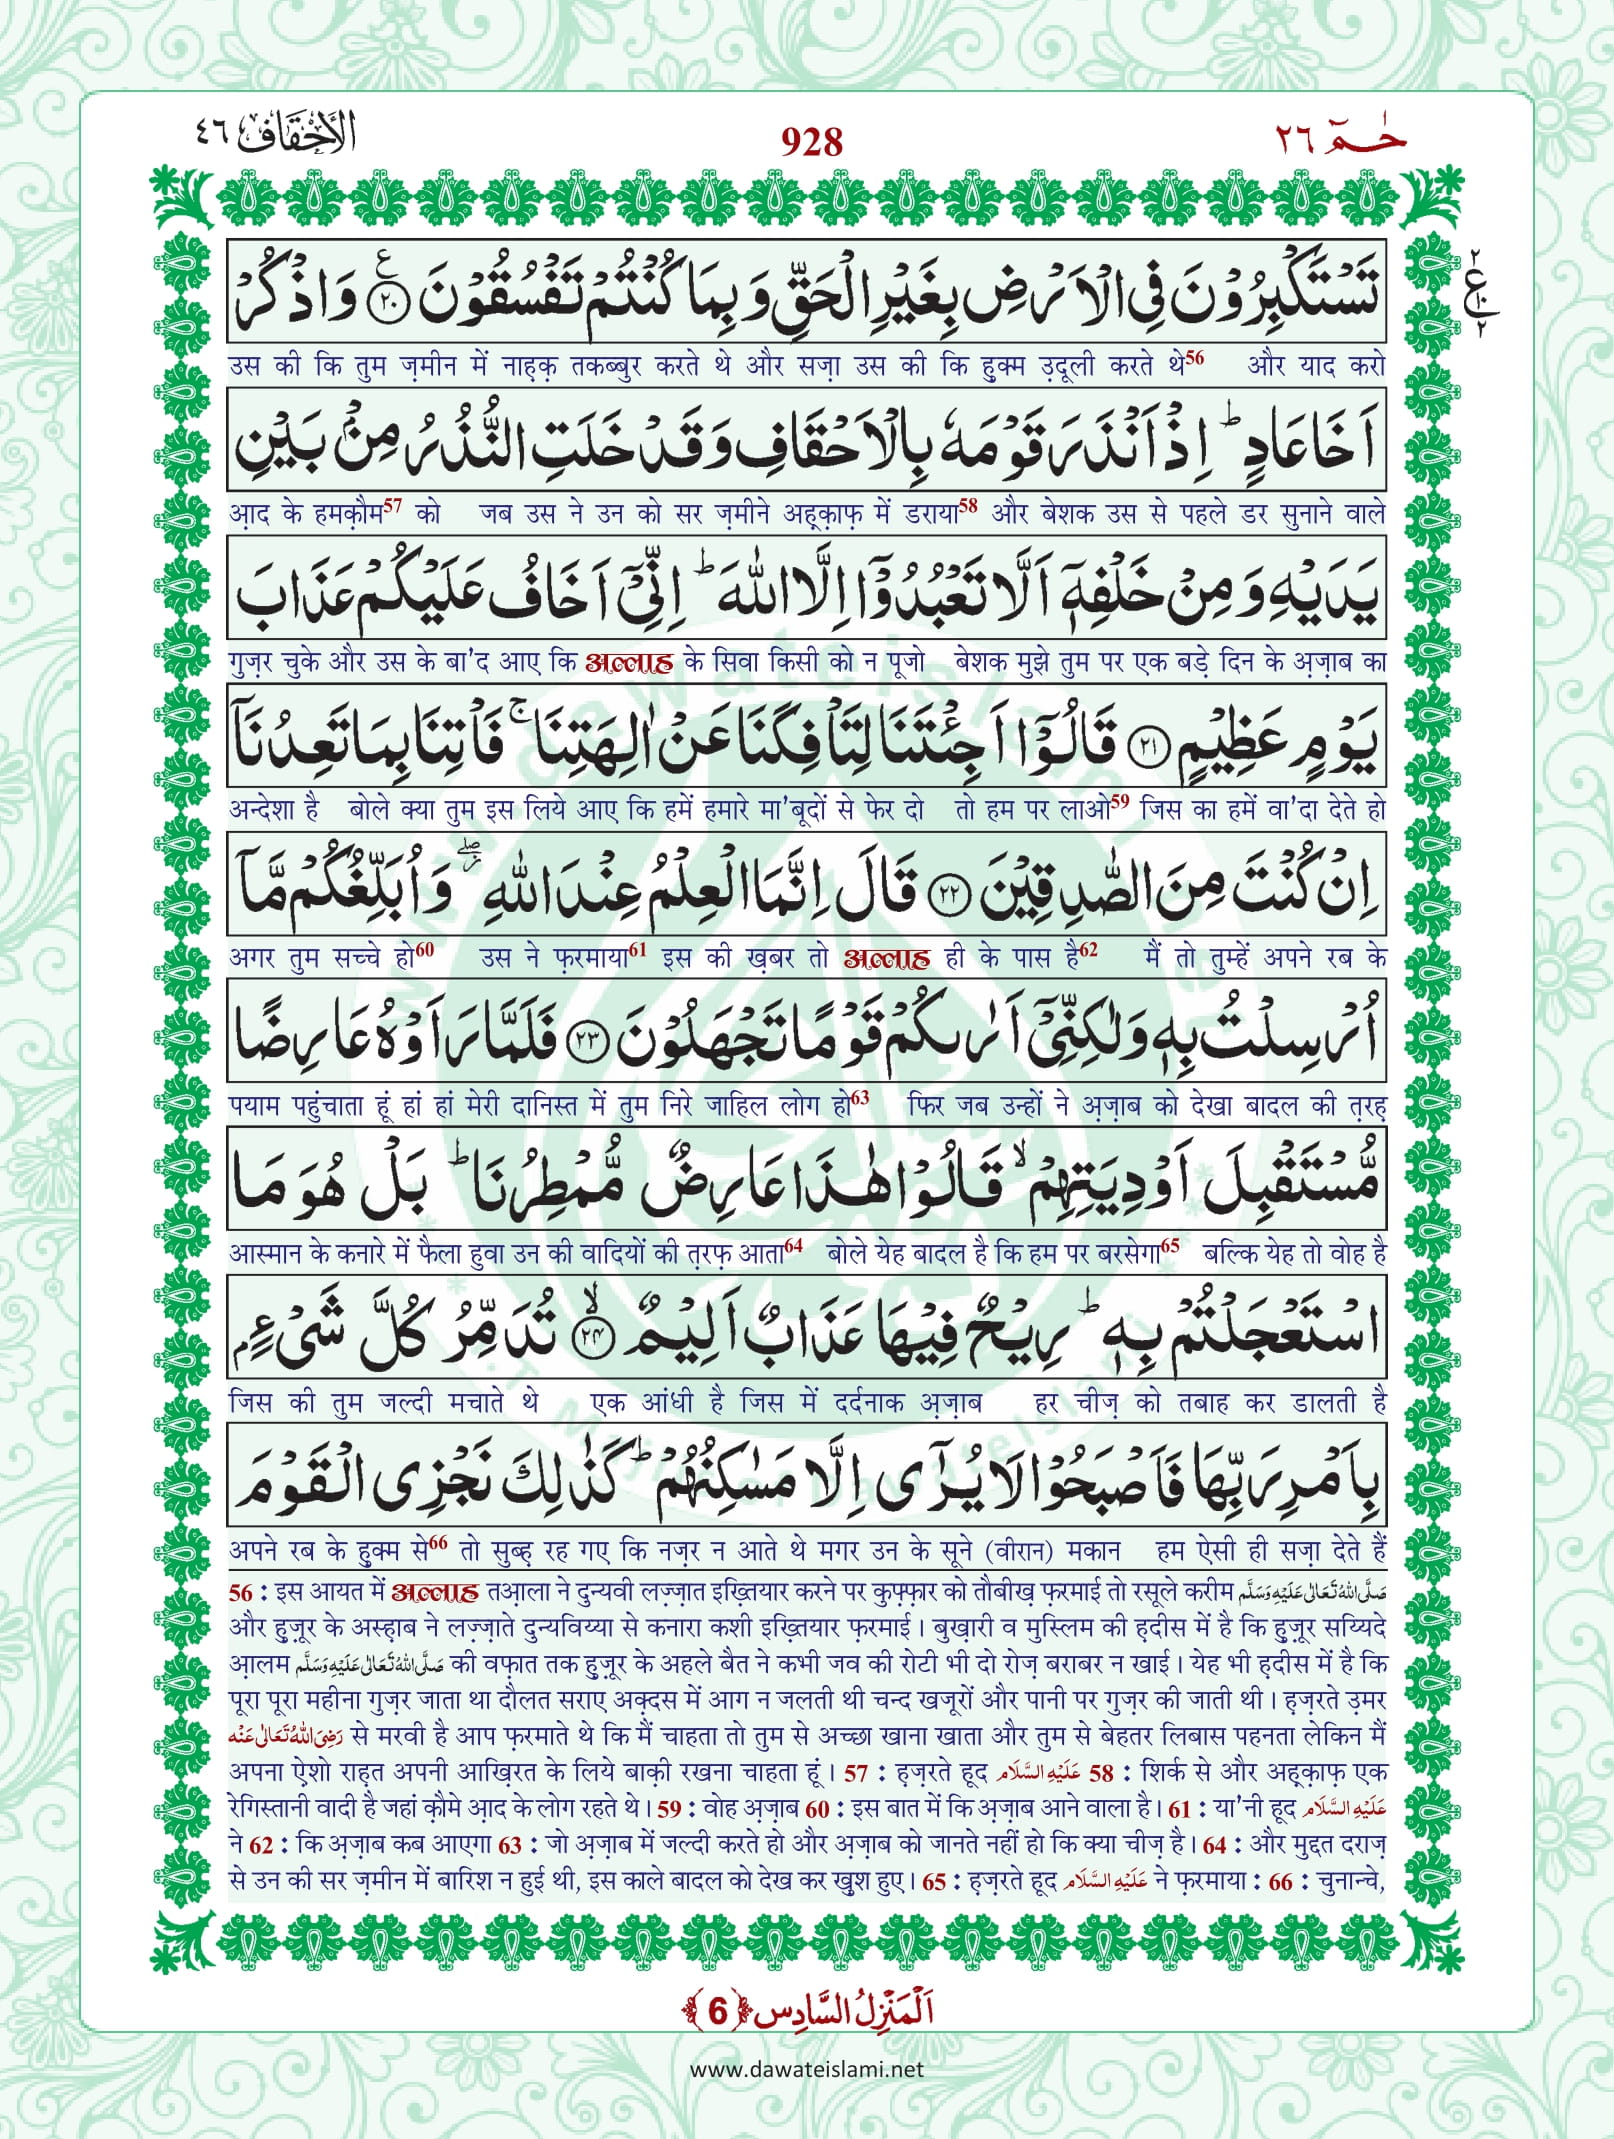 الاحقاف ٤٦
928
حٰمٓ ٢٦
تَسْتَكْبِرُوْنَ فِی الْاَرْضِ بِغَیْرِ الْحَقِّ وَ بِمَا كُنْتُمْ تَفْسُقُوْنَ ۠ ﴿۲۰﴾ وَ اذْكُرْ
उस की कि तुम ज़मीन में नाह़क़ तकब्बुर करते थे और सज़ा उस की कि हुक्म उ़दूली करते थे56 और याद करो
اَخَا عَادٍ ؕ اِذْ اَنْذَرَ قَوْمَهٗ بِالْاَحْقَافِ وَ قَدْ خَلَتِ النُّذُرُ مِنْۢ بَیْنِ
आ़द के हमक़ौम57 को जब उस ने उन को सर ज़मीने अह़्क़ाफ़ में डराया58 और बेशक उस से पहले डर सुनाने वाले
یَدَیْهِ وَ مِنْ خَلْفِهٖۤ اَلَّا تَعْبُدُوْۤا اِلَّا اللّٰهَ ؕ اِنِّیْۤ اَخَافُ عَلَیْكُمْ عَذَابَ
गुज़र चुके और उस के बा'द आए कि अल्लाह के सिवा किसी को न पूजो बेशक मुझे तुम पर एक बड़े दिन के अ़ज़ाब का
یَوْمٍ عَظِیْمٍ ﴿۲۱﴾ قَالُوْۤا اَجِئْتَنَا لِتَاْفِكَنَا عَنْ اٰلِهَتِنَا ۚ فَاْتِنَا بِمَا تَعِدُنَاۤ
अन्देशा है बोले क्या तुम इस लिये आए कि हमें हमारे मा'बूदों से फेर दो तो हम पर लाओ59 जिस का हमें वा'दा देते हो
اِنْ كُنْتَ مِنَ الصّٰدِقِیْنَ ﴿۲۲﴾ قَالَ اِنَّمَا الْعِلْمُ عِنْدَ اللّٰهِ ۖؗ وَ اُبَلِّغُكُمْ مَّاۤ
अगर तुम सच्चे हो60 उस ने फ़रमाया61 इस की ख़बर तो अल्लाह ही के पास है62 मैं तो तुम्हें अपने रब के
اُرْسِلْتُ بِهٖ وَ لٰكِنِّیْۤ اَرٰىكُمْ قَوْمًا تَجْهَلُوْنَ ﴿۲۳﴾ فَلَمَّا رَاَوْهُ عَارِضًا
पयाम पहुंचाता हूं हां हां मेरी दानिस्त में तुम निरे जाहिल लोग हो63 फिर जब उन्हों ने अ़ज़ाब को देखा बादल की त़रह़
مُّسْتَقْبِلَ اَوْدِیَتِهِمْ ۙ قَالُوْا هٰذَا عَارِضٌ مُّمْطِرُنَا ؕ بَلْ هُوَ مَا
आस्मान के कनारे में फैला हुवा उन की वादियों की त़रफ़ आता64 बोले येह बादल है कि हम पर बरसेगा65 बल्कि येह तो वोह है
اسْتَعْجَلْتُمْ بِهٖ ؕ رِیْحٌ فِیْهَا عَذَابٌ اَلِیْمٌ ۙ ﴿۲۴﴾ تُدَمِّرُ كُلَّ شَیْءٍۭ
जिस की तुम जल्दी मचाते थे एक आंधी है जिस में दर्दनाक अ़ज़ाब हर चीज़ को तबाह कर डालती है
بِاَمْرِ رَبِّهَا فَاَصْبَحُوْا لَا یُرٰۤى اِلَّا مَسٰكِنُهُمْ ؕ كَذٰلِكَ نَجْزِی الْقَوْمَ
अपने रब के हुक्म से66 तो सुब्ह़ रह गए कि नज़र न आते थे मगर उन के सूने (वीरान) मकान हम ऐसी ही सज़ा देते हैं
56 : इस आयत में अल्लाह तआ़ला ने दुन्यवी लज़्ज़ात इख़्तियार करने पर कुफ़्फ़ार को तौबीख़ फ़रमाई तो रसूले करीम صَلَّى اللّٰهُ تَعَالٰى عَلَيْهِ وَسَلَّم
और हुज़ूर के अस्ह़ाब ने लज़्ज़ाते दुन्यविय्या से कनारा कशी इख़्तियार फ़रमाई । बुख़ारी व मुस्लिम की ह़दीस में है कि हुज़ूर सय्यिदे
आ़लम صَلَّى اللّٰهُ تَعَالٰى عَلَيْهِ وَسَلَّم की वफ़ात तक हुज़ूर के अहले बैत ने कभी जव की रोटी भी दो रोज़ बराबर न खाई । येह भी ह़दीस में है कि
पूरा पूरा महीना गुज़र जाता था दौलत सराए अक़्दस में आग न जलती थी चन्द खजूरों और पानी पर गुज़र की जाती थी । ह़ज़रते उ़मर
رَضِىَ اللّٰهُ تَعَالٰى عَنْه से मरवी है आप फ़रमाते थे कि मैं चाहता तो तुम से अच्छा खाना खाता और तुम से बेहतर लिबास पहनता लेकिन मैं
अपना ऐशो राह़त अपनी आख़िरत के लिये बाक़ी रखना चाहता हूं । 57 : ह़ज़रते हूद عَلَيْهِ السَّلَام 58 : शिर्क से और अह़्क़ाफ़ एक
रेगिस्तानी वादी है जहां क़ौमे आ़द के लोग रहते थे । 59 : वोह अ़ज़ाब 60 : इस बात में कि अ़ज़ाब आने वाला है । 61 : या'नी हूद عَلَيْهِ السَّلَام
ने 62 : कि अ़ज़ाब कब आएगा 63 : जो अ़ज़ाब में जल्दी करते हो और अ़ज़ाब को जानते नहीं हो कि क्या चीज़ है । 64 : और मुद्दत दराज़
से उन की सर ज़मीन में बारिश न हुई थी, इस काले बादल को देख कर खुश हुए । 65 : ह़ज़रते हूद عَلَيْهِ السَّلَام ने फ़रमाया : 66 : चुनान्चे,
اَلْمَنْزِلُ السَّادِس ﴿6﴾
www.dawateislami.net